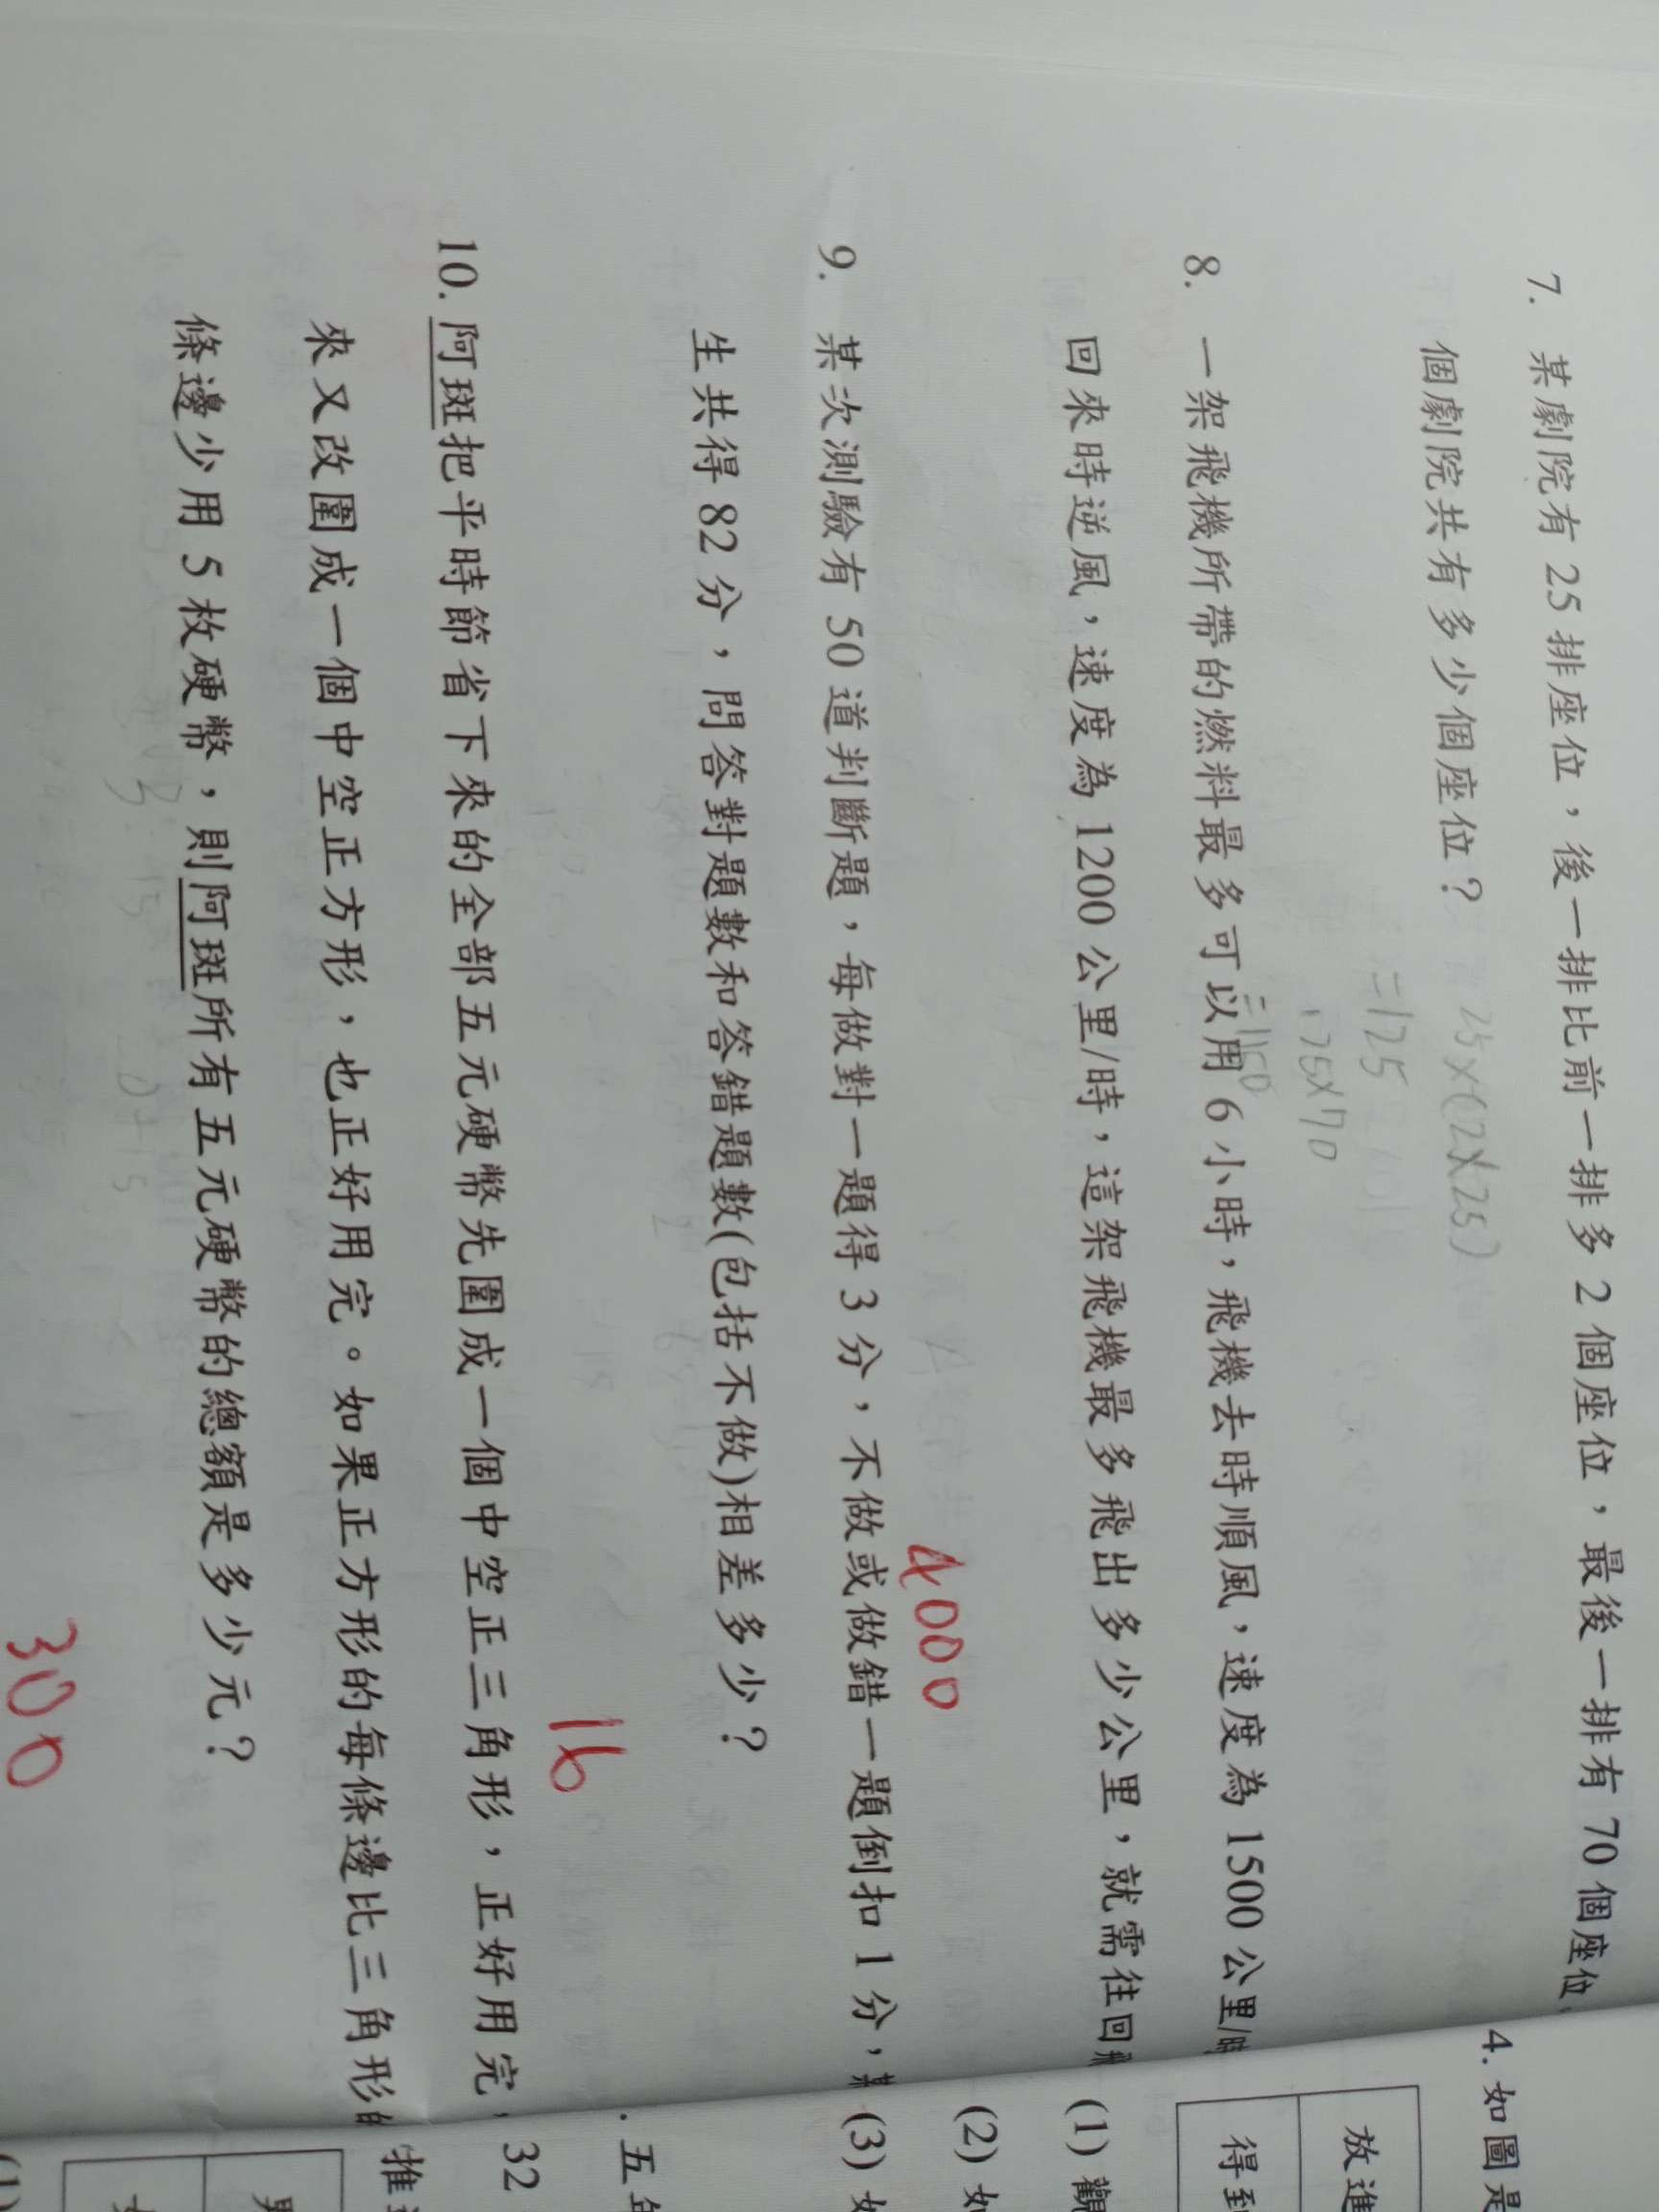 7. 某劇院有 25 排座位，後一排比前一排多 2 個座位，最後一排有 70 個座位
個劇院共有多少個座位？
25×(2×25)
=125
×70
8. 一架飛機所帶的燃料最多可以用 6 小時，飛機去時順風，速度為 1500 公里/時
回來時逆風，速度為 1200 公里/時，這架飛機最多飛出多少公里，就需往回飛
4000
9. 某次測驗有 50 道判斷題，每做對一題得 3 分，不做或做錯一題倒扣 1 分，某
生共得 82 分，問答對題數和答錯題數(包括不做)相差多少？
16
10. 阿斑把平時節省下來的全部五元硬幣先圍成一個中空正三角形，正好用完，
來又改圍成一個中空正方形，也正好用完。如果正方形的每條邊比三角形的
條邊少用 5 枚硬幣，則阿斑所有五元硬幣的總額是多少元？
300
4. 如圖是
放進
得到
(1) 觀
(2) 如
(3) 如
. 五年
32
推
男
(1)